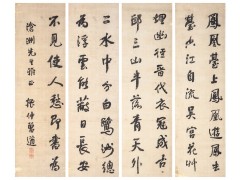 鳳凰臺上鳳凰遊鳳去
臺空江自流吳宮花艸
埋幽徑晉代衣冠成古
邱三山半落青天外
二水中分白鷺洲總
為浮雲能蔽日長安
不見使人愁即書為
先生雅正